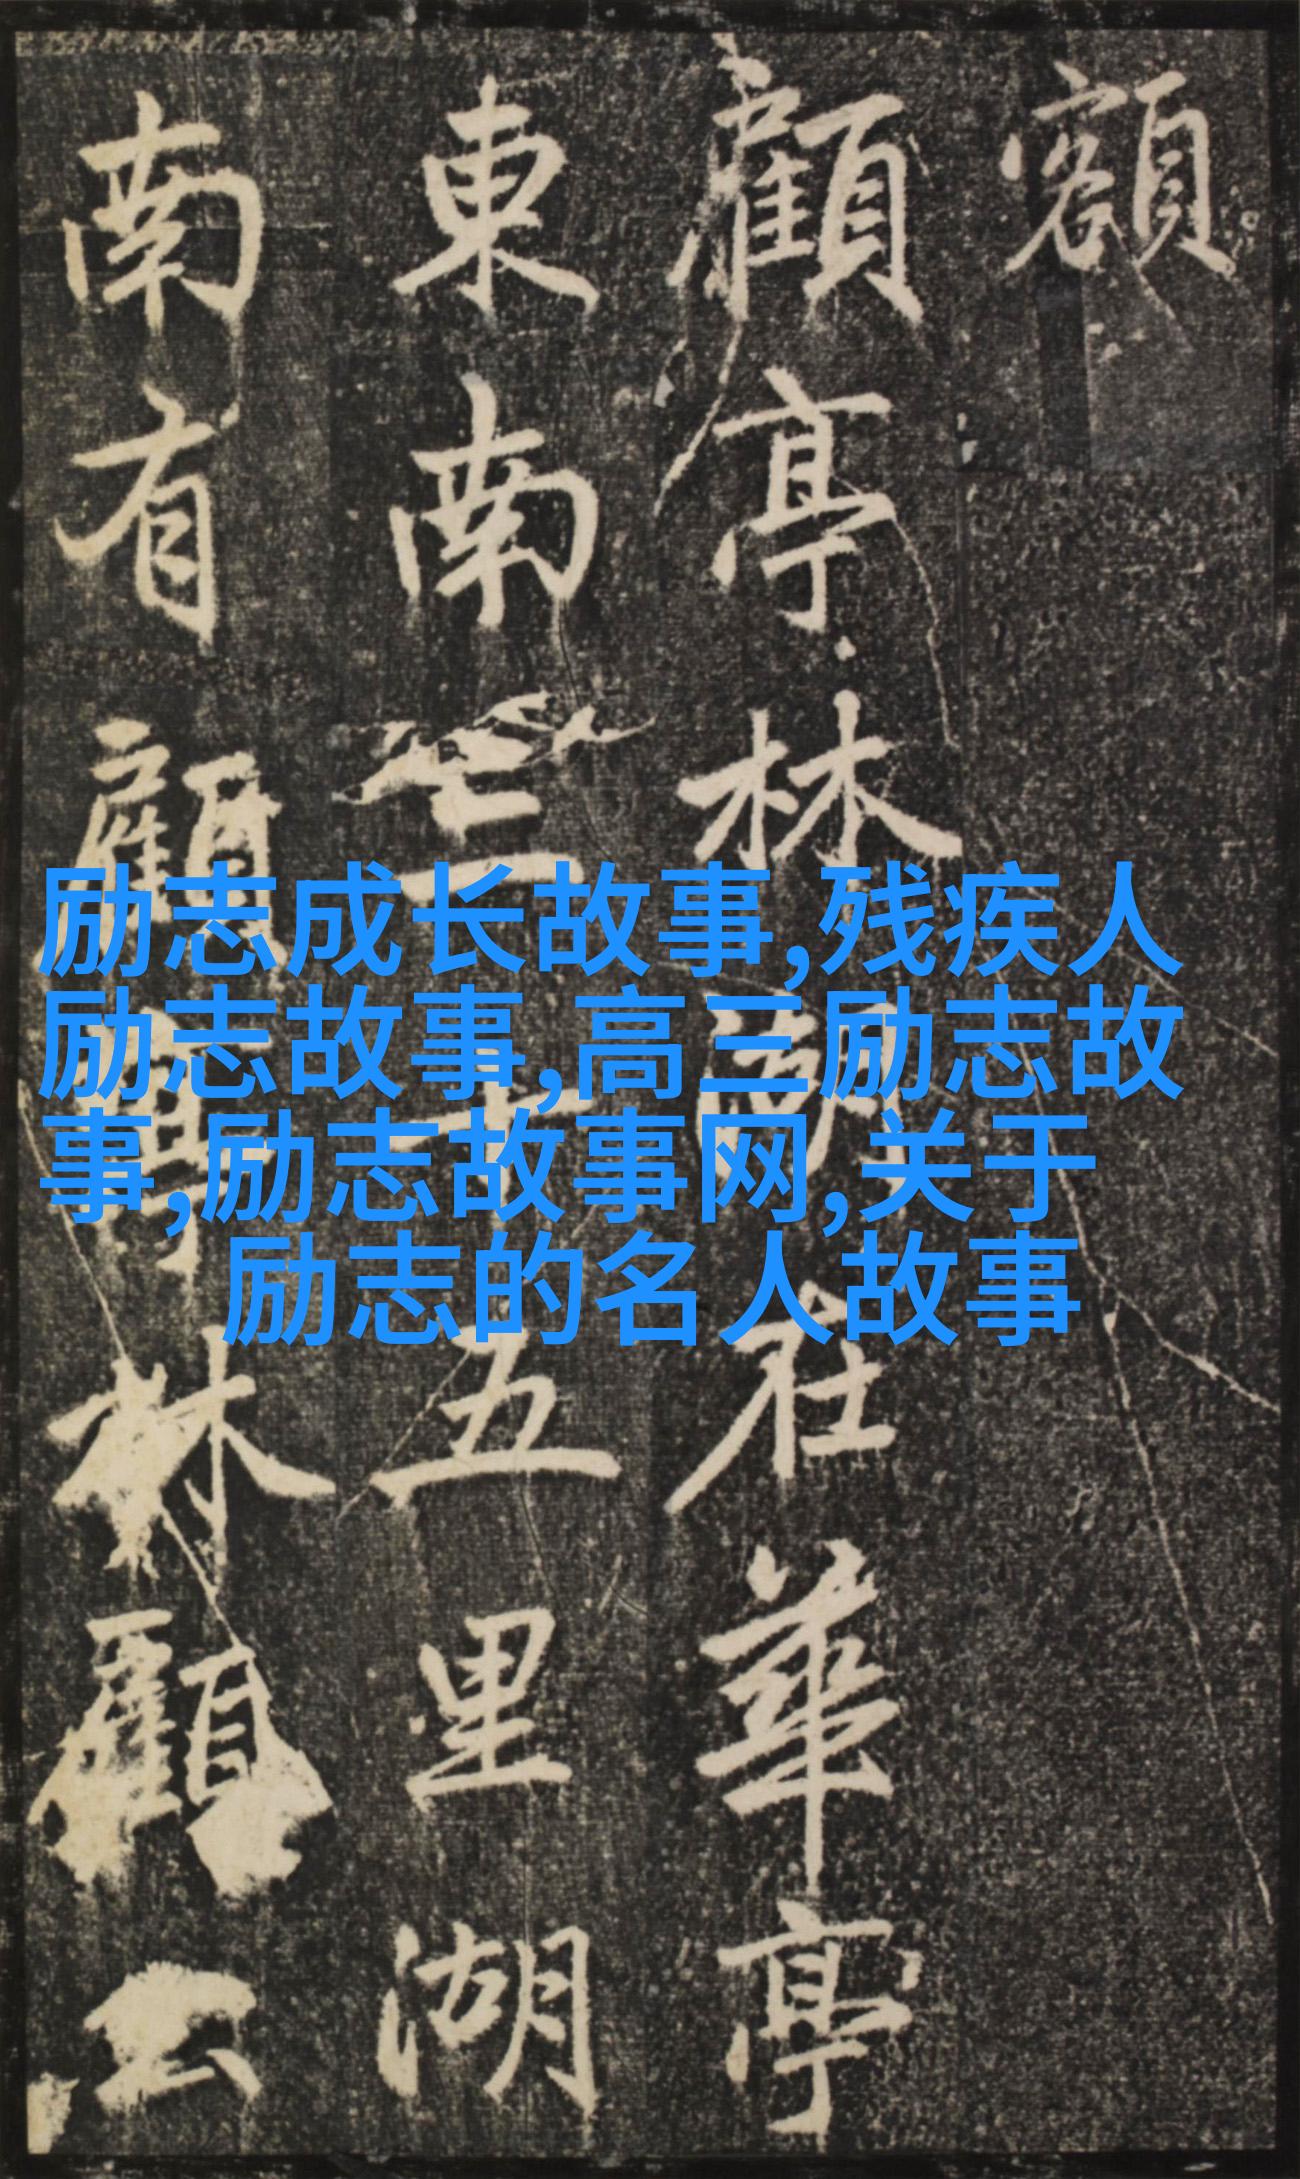 額
顧亭林湖在華亭
東南三十五里湖
南有顧亭林顧公
励志成长故事,残疾人
励志故事,高三励志故
事,励志故事网,关于
励志的名人故事